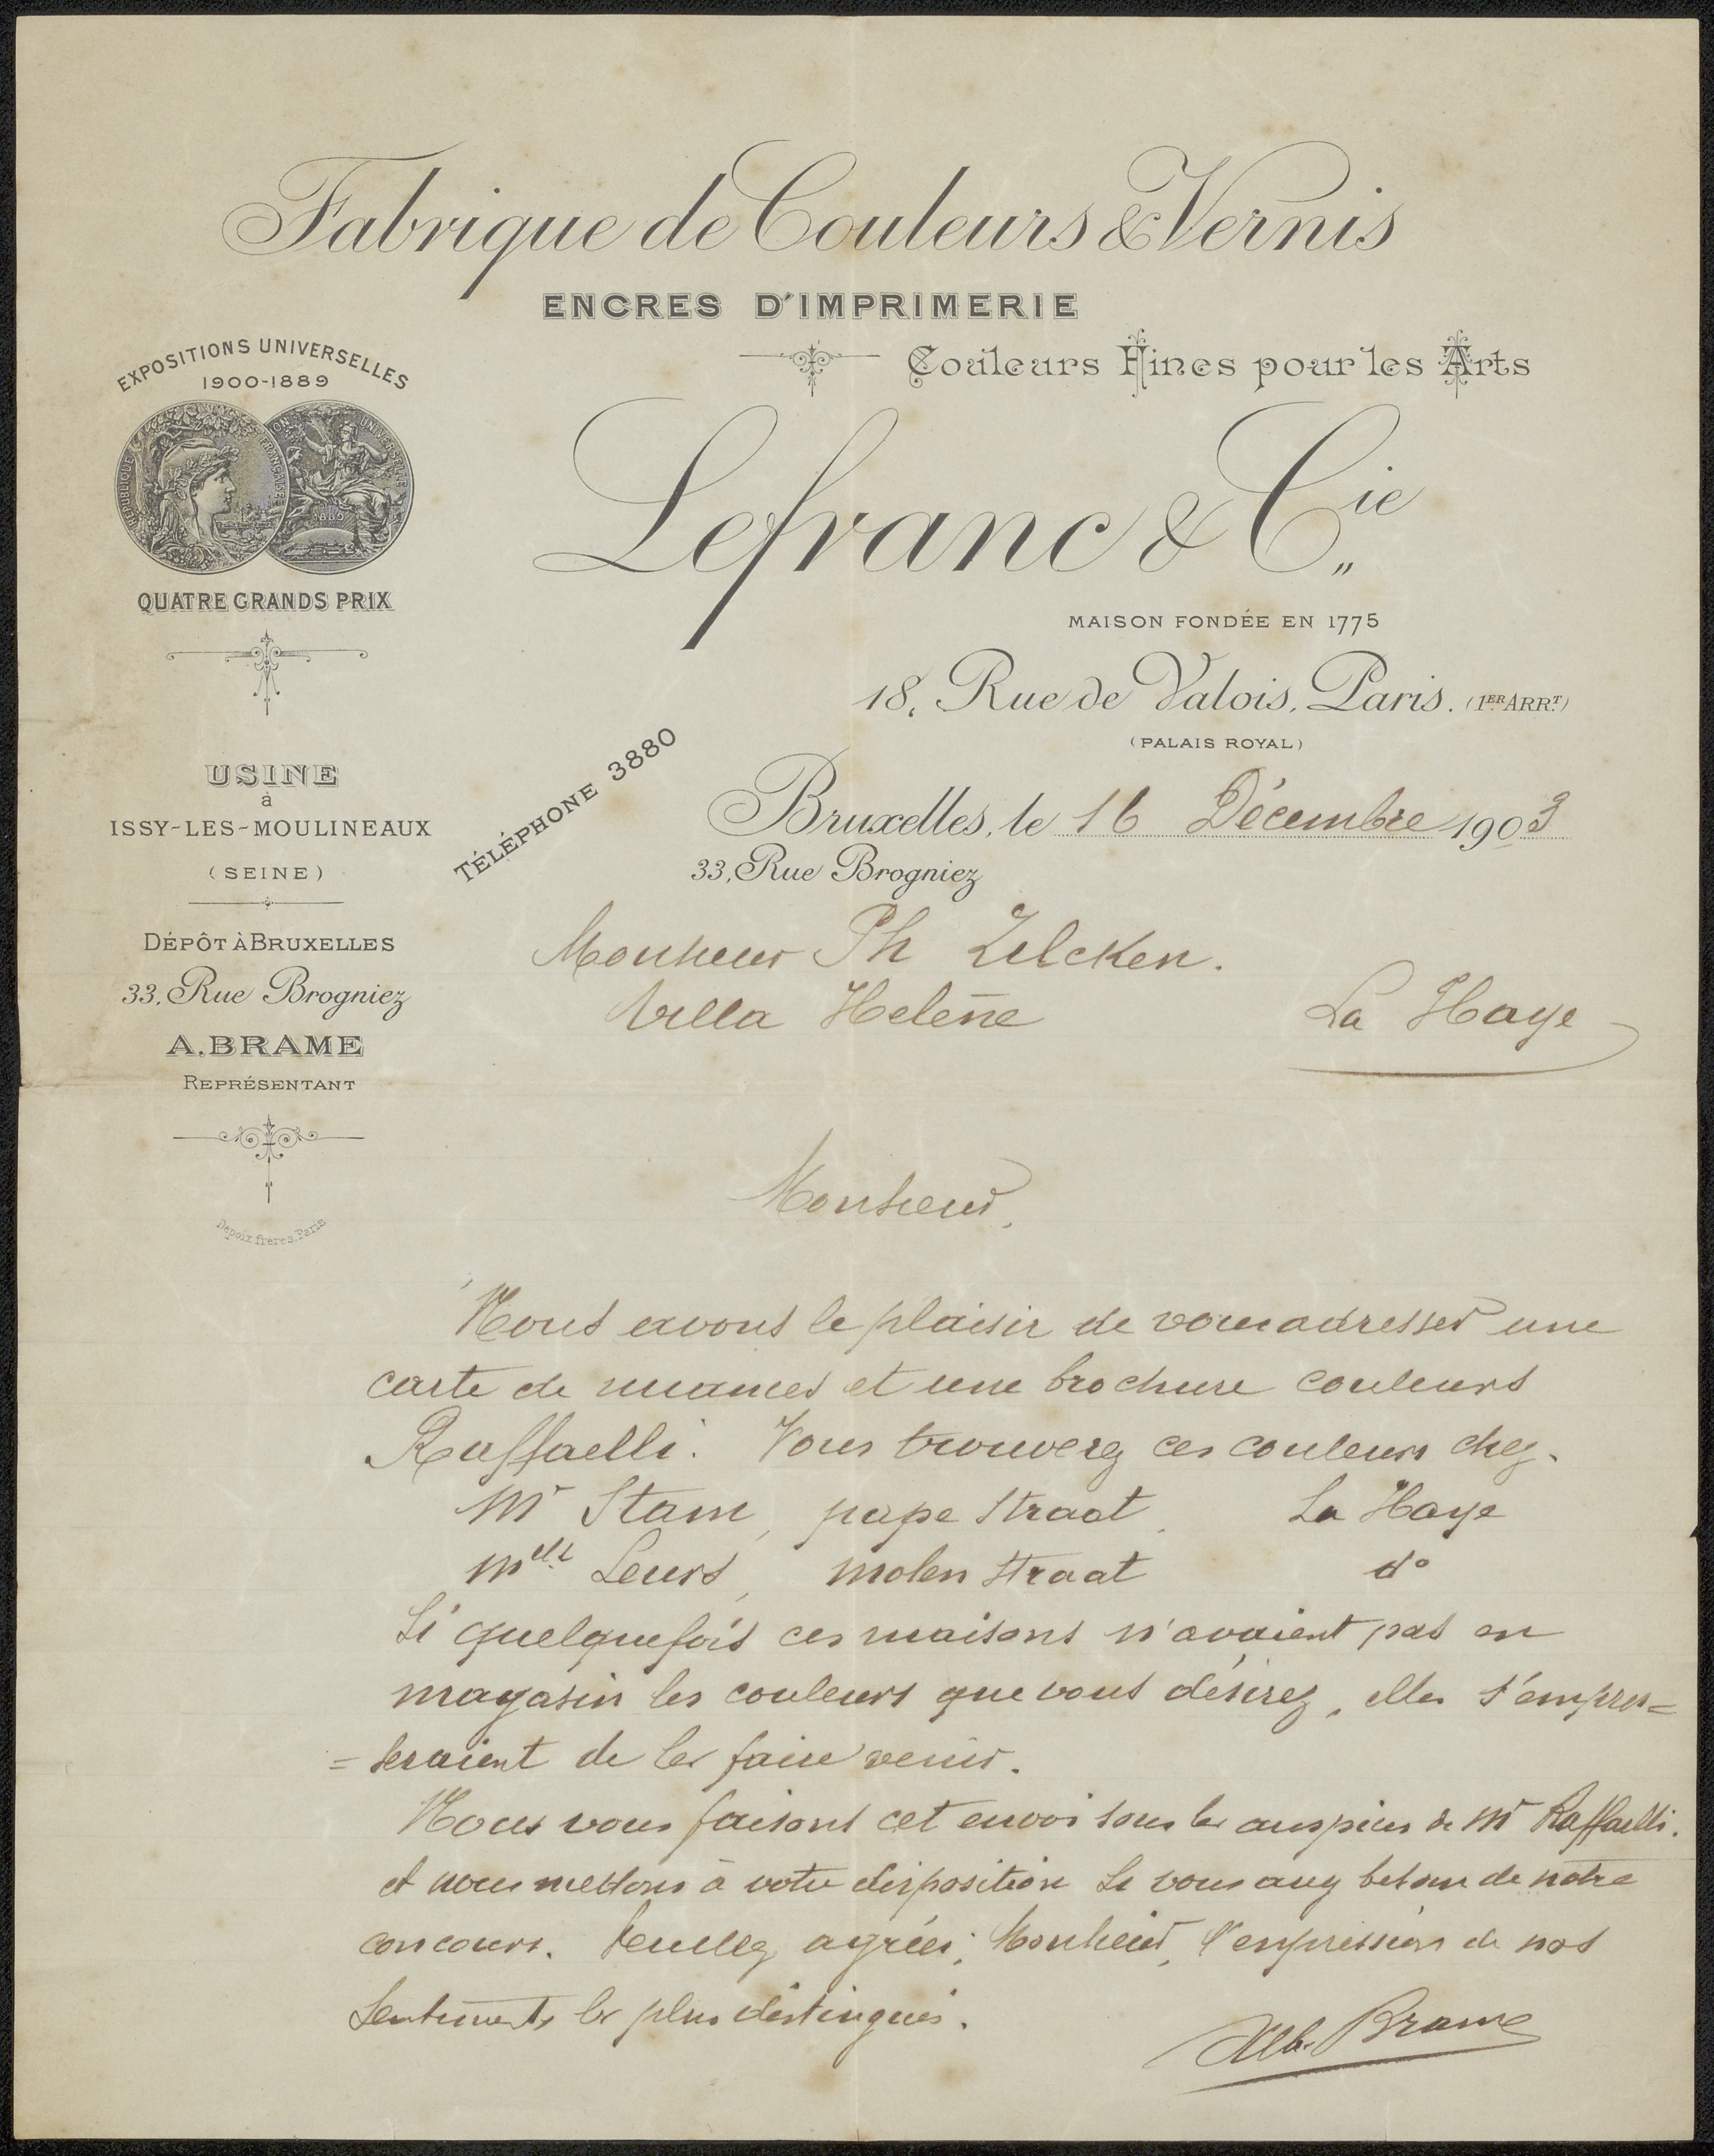 Fabrique de Couleurs & Vernis
ENCRES D'IMPRIMERIE
Couleurs Fines pour les Arts
EXPOSITIONS UNIVERSELLES
1900-1889
REPUBLIQUE FRANÇAISE
UNIVERSELLE
1889
QUATRE GRANDS PRIX
Lefranc & Cie
MAISON FONDÉE EN 1775
18, Rue de Valois, Paris. (1ER ARRT)
(PALAIS ROYAL)
USINE
à
ISSY-LES-MOULINEAUX
(SEINE)
DÉPÔT À BRUXELLES
33, Rue Brogniez
A. BRAME
REPRÉSENTANT
Depoix frères, Paris
TÉLÉPHONE 3880
Bruxelles, le 16 Décembre 1903
33, Rue Brogniez
Monsieur Ph Zilcken.
Villa Helène La Haye
Monsieur,
Nous avons le plaisir de vous adresser une
carte de nuances et une brochure couleurs
Raffaelli. Vous trouverez ces couleurs chez.
Mr Stam, pape Straat, La Haye
Melle Leurs, molen Straat do
Si quelquefois ces maisons n'avaient pas en
magasin les couleurs que vous désirez, elles s'empres=
=seraient de les faire venir.
Nous vous faisons cet envoi sous les auspices de Mr Raffaelli.
et nous mettons à votre disposition si vous avez besoin de notre
concours. Veuillez agréer, Monsieur, l'expression de nos
sentiments les plus distingués.
Alb. Brame